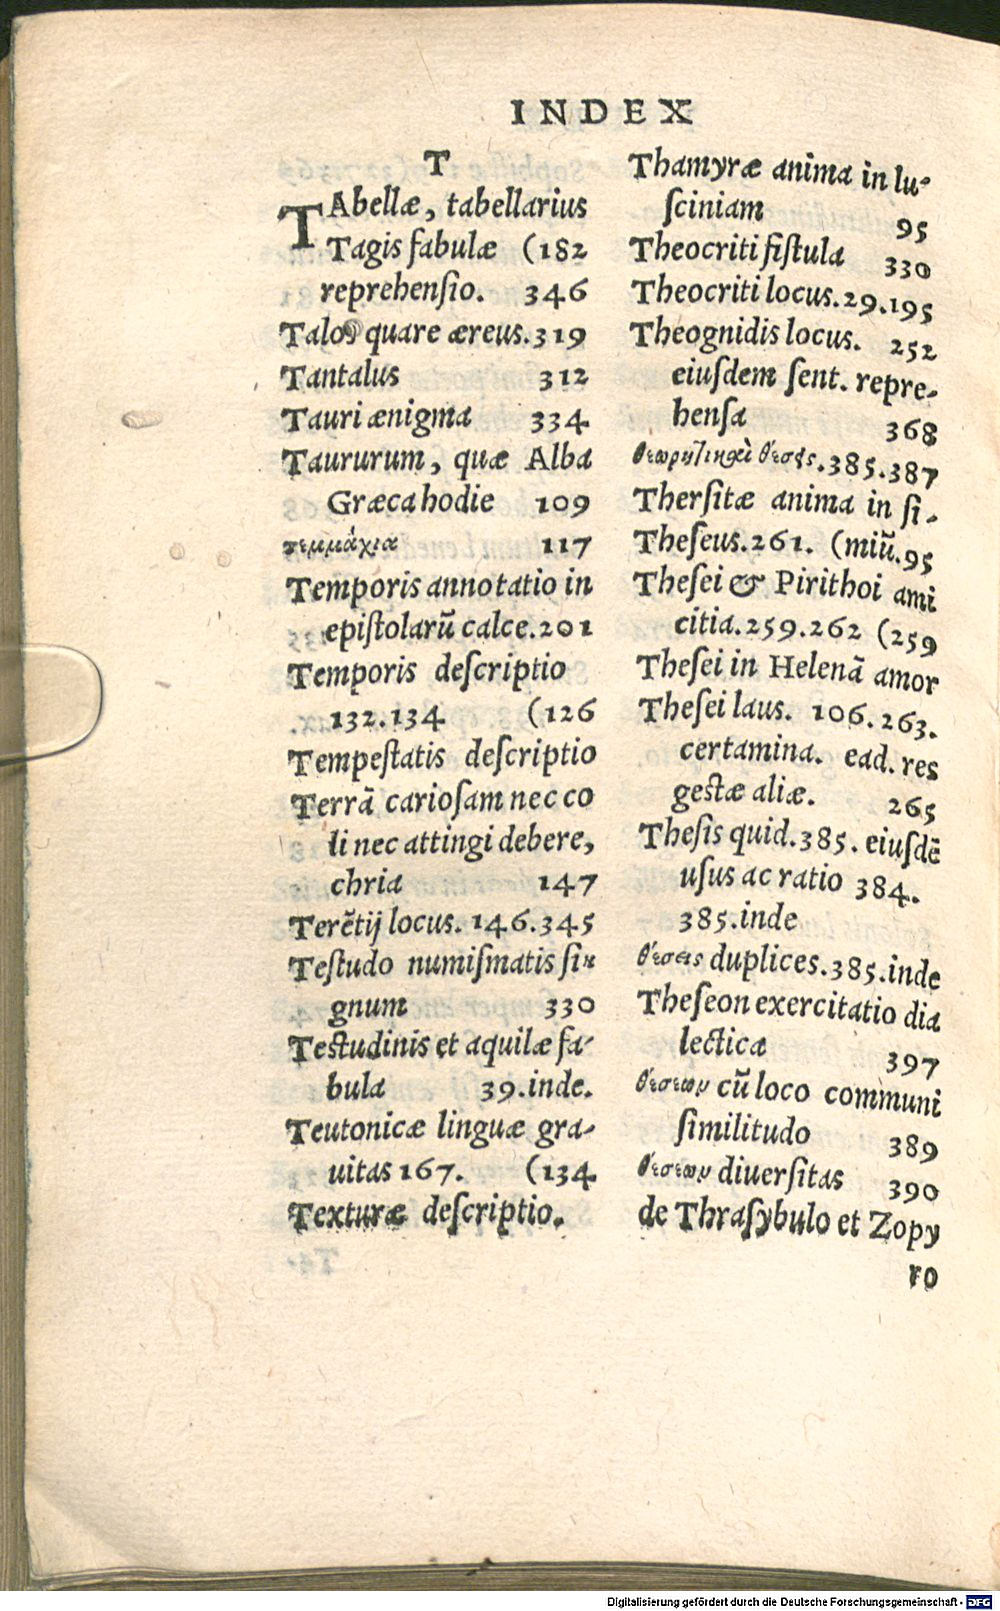 INDEX
T
TAbellæ, tabellarius
Tagis fabulæ (182
reprehenſio. 346
Talos quare æreus.319
Tantalus 312
Tauri ænigma 334
Taururum, quæ Alba
Græca hodie 109
τεμμάχια 117
Temporis annotatio in
epiſtolarũ calce.201
Temporis deſcriptio
132.134 (126
Tempeſtatis deſcriptio
Terrã carioſam nec co
li nec attingi debere,
chria 147
Terẽtij locus. 146.345
Teſtudo numiſmatis ſi-
gnum 330
Teſtudinis et aquilæ fa-
bula 39.inde.
Teutonicæ linguæ gra-
uitas 167. (134
Texturæ deſcriptio.
Thamyræ anima in lu-
ſciniam 95
Theocriti fiſtula 330
Theocriti locus.29.195
Theognidis locus. 252
eiuſdem ſent. repre-
henſa 368
θέσεις.385.387
Therſitæ anima in ſi-
Theſeus.261. (miũ.95
Theſei & Pirithoi ami
citia.259.262 (259
Theſei in Helenã amor
Theſei laus. 106.263.
certamina. ead. res
geſtæ aliæ. 265
Theſis quid.385. eiuſdẽ
uſus ac ratio 384.
385.inde
θέσεις duplices.385.inde
Theſeon exercitatio dia
lectica 397
θέσεων cũ loco communi
ſimilitudo 389
θέσεων diuerſitas 390
de Thraſybulo et Zopy
ro
Digitalisierung gefördert durch die Deutsche Forschungsgemeinschaft - DFG